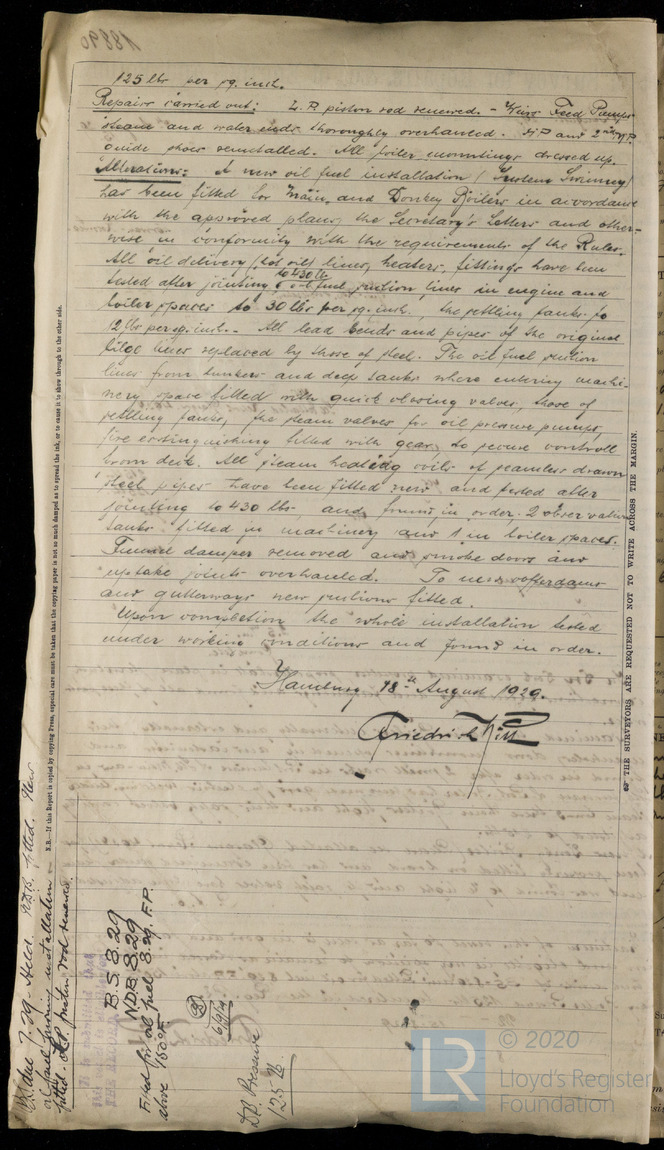 18890
125 lbs per sq. inch.
Repairs carried out: L.P. piston rod renewed. - Weirs Feed Pumps
steam and water ends thoroughly overhauled. H.P. and 2nd M.P.
guide shoes remetalled. All boiler mountings dressed up.
Alterations: A new oil fuel installation (System
has been fitted for Main and Donkey Boilers in accordance
with the approved plans, the Secretary's Letters and other-
wise in conformity with the requirements of the Rules.
All oil delivery (hot oil) lines, heaters, fittings have been
tested after jointing to 430 lbs oil fuel suction lines in engine and
boiler spaces to 30 lbs per sq. inch., the settling tanks to
12 lbs per sq. inch. - All lead bends and pipes of the original
bilge lines replaced by those of steel. The oil fuel suction
lines from bunkers and deep tanks where entering machi-
nery space fitted with quick closing valves, those of
settling tanks, the steam valves for oil pressure pumps,
fire extinguishing fitted with gear, to secure controll
from deck. All steam heating coils of seamless drawn
steel pipes have been fitted new and tested after
jointing to 430 lbs and found in order. 2 observation
tanks fitted in machinery and 1 in boiler spaces.
Funnel damper removed and smoke doors and
uptake joints overhauled. To new cofferdams
and gutterways new suctions fitted.
Upon completion the whole installation tested
under working conditions and found in order.
Hamburg, 18th August 1929.
Friedrich
THE SURVEYORS ARE REQUESTED NOT TO WRITE ACROSS THE MARGIN.
N.B.—If this Report is copied by copying Press, especial care must be taken that the copying paper is not so much damped as to spread the ink, or to cause it to show through to the other side.
due 7.29. NDB fitted. New
oil fuel burning installation
fitted. L.P. piston rod renewed.
B.S. 8.29
NDB 8.29
Fitted for oil fuel 8.29. F.P.
above 150°F.
6/9/29
D.B. Pressure
125 lb
LR
© 2020
Lloyd's Register
Foundation